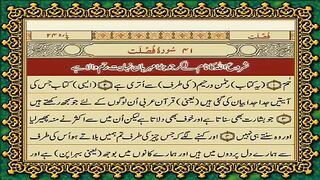 فُصّلَت پارہ ۲۴
۴۱ سُورَۃُ فُصِّلَت
شروع اللہ کا نام لے کر جو بڑا مہربان نہایت رحم والا ہے
حٰم (یہ کتاب) رحمٰن ورحیم (کی طرف) سے اُتری ہے (ایسی) کتاب جس کی
آیتیں جدا جدا بیان کی گئی ہیں (یعنی) قرآن عربی اُن لوگوں کے لئے جو سمجھ رکھتے ہیں
جو بشارت بھی سناتا ہے اور خوف بھی دلاتا ہے لیکن اُن میں سے اکثر نے منہ پھیر لیا
اور وہ سنتے ہی نہیں اور کہنے لگے کہ جس چیز کی طرف تم ہمیں بلاتے ہو اُس کی طرف
سے ہمارے دل پردوں میں ہیں اور ہمارے کانوں میں بوجھ (یعنی بہراپن) ہے اور